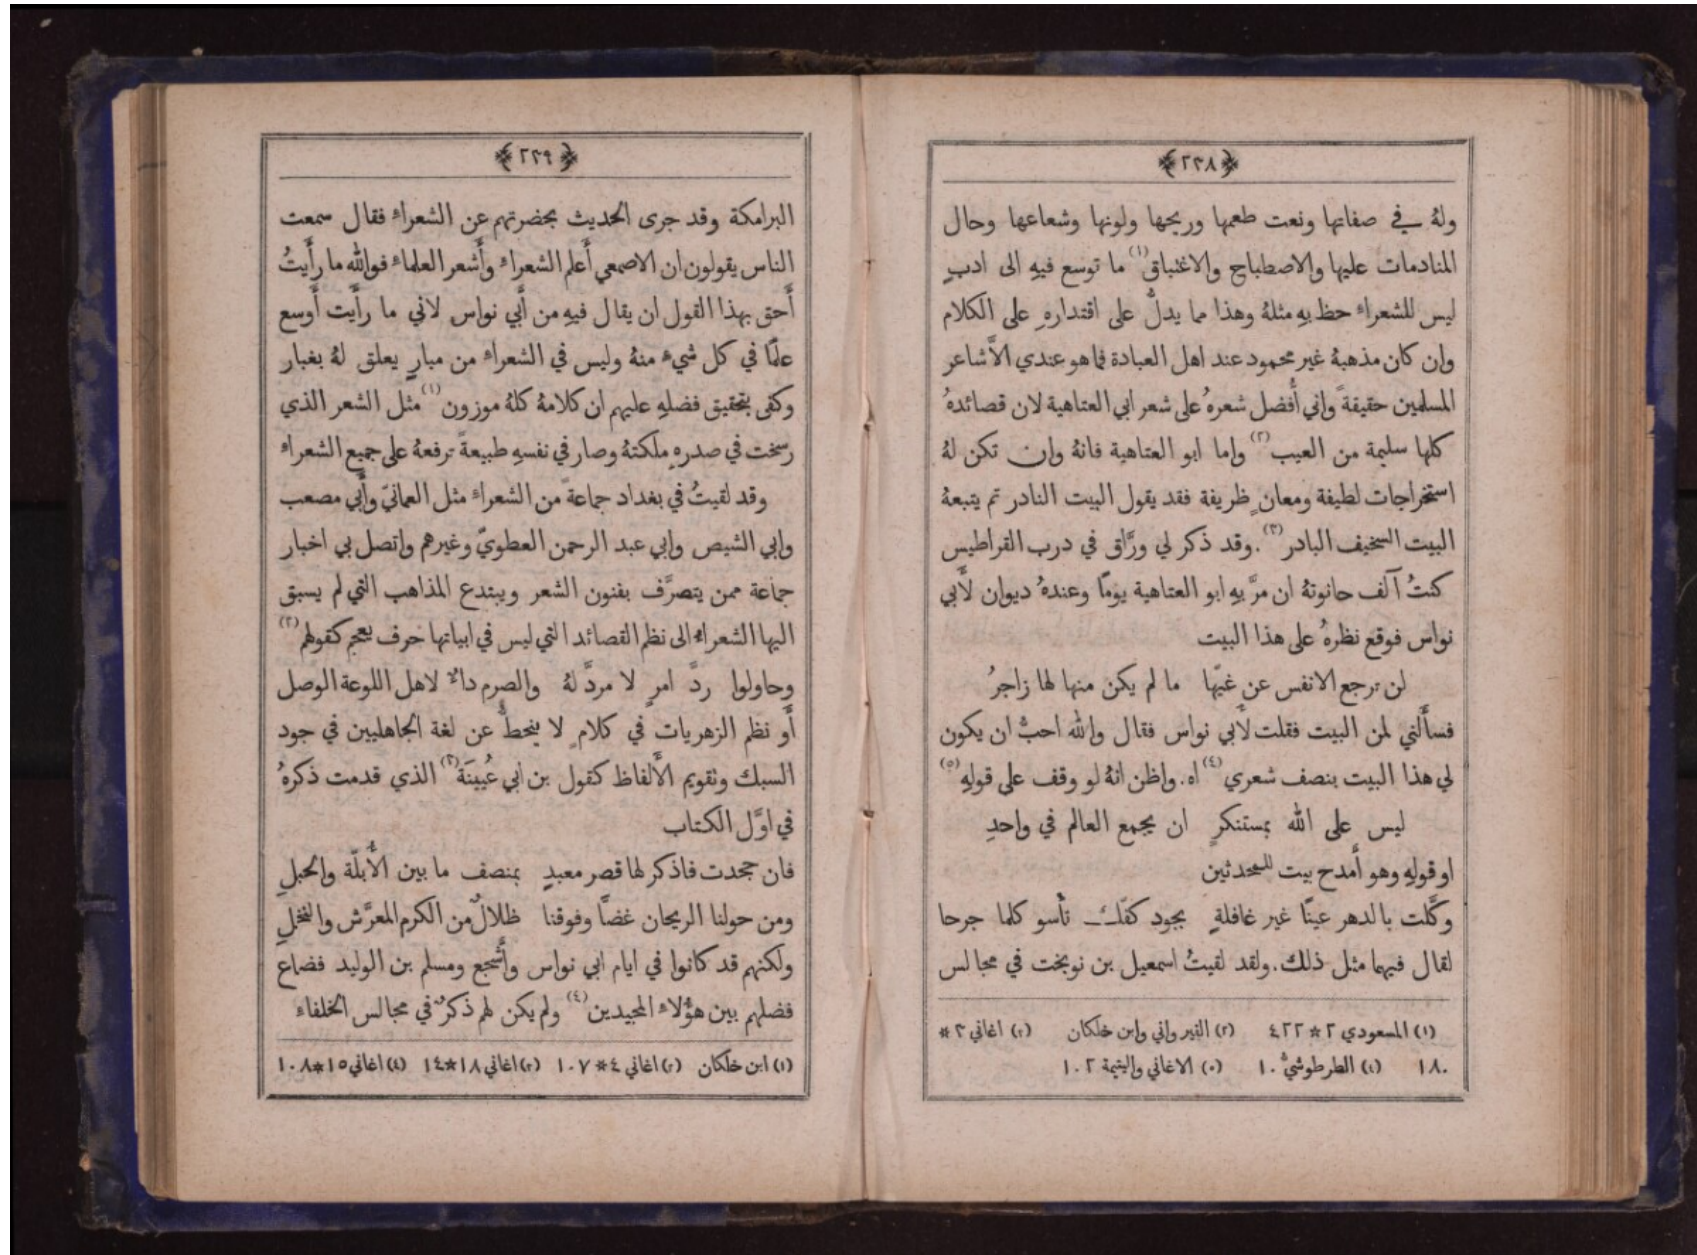 ﴿٢٣٨﴾
ولهُ في صفاتها ونعت طعمها وريحها ولونها وشعاعها وحال
المنادمات عليها والاصطباح والاغتباق(١) ما توسع فيهِ الى ادبٍ
ليس للشعراء حظ بهِ مثلهُ وهذا مما يدلُّ على اقتدارهِ على الكلام
وان كان مذهبهُ غير محمود عند اهل العبادة فما هو عندي الَّا شاعر
المسلمين حقيقةً واني أُفضل شعرهُ على شعر ابي العتاهية لان قصائدهُ
كلها سليمة من العيب(٢) واما ابو العتاهية فانهُ وان تكن لهُ
استخراجات لطيفة ومعانٍ ظريفة فقد يقول البيت النادر ثم يتبعهُ
البيت السخيف البادر(٣). وقد ذكر لي ورَّاق في درب القراطيس
كنتُ آلف حانوتهُ ان مرَّ بهِ ابو العتاهية يومًا وعندهُ ديوان لأَبي
نواس فوقع نظرهُ على هذا البيت
لن ترجع الانفس عن غيّها ما لم يكن منها لها زاجرُ
فسأَلني لمن البيت فقلت لأَبي نواس فقال والله احبُّ ان يكون
لي هذا البيت بنصف شعري(٤) اه. واظن انهُ لو وقف على قولهِ(٥)
ليس على الله بمستنكرٍ ان يجمع العالم في واحدِ
او قولهِ وهو أَمدح بيت للمحدثين
وكَّلت بالدهر عينًا غير غافلةٍ بجود كفّك تأسو كلما جرحا
لقال فيهما مثل ذلك. ولقد لقيتُ اسمعيل بن نوبخت في مجالس
(١) المسعودي ٢*٤٢٢ (٢) القيرواني وابن خلكان (٣) اغاني ٣*
١٨٠ (٤) الطرطوشيُّ ١٠ (٥) الاغاني واليتيمة ١٠٢
﴿٢٣٩﴾
البرامكة وقد جرى الحديث بحضرتهم عن الشعراء فقال سمعت
الناس يقولون ان الاصمعي أَعلم الشعراء وأَشعر العلماء فوالله ما رأَيتُ
أَحق بهذا القول ان يقال فيهِ من أَبي نواس لاني ما رأَيت أَوسع
علمًا في كل شيءٍ منهُ وليس في الشعراء من مبارٍ يعلق لهُ بغبار
وكفى بتحقيق فضلهِ عليهم ان كلامهُ كلهُ موزون(١) مثل الشعر الذي
رسخت في صدرهِ ملكتهُ وصار في نفسهِ طبيعةً ترفعهُ على جميع الشعراء
وقد لقيتُ في بغداد جماعةً من الشعراء مثل العمانيّ وأَبي مصعب
وابي الشيص وابي عبد الرحمن العطويّ وغيرهم واتصل بي اخبار
جماعة ممن يتصرَّف بفنون الشعر ويبتدع المذاهب التي لم يسبق
اليها الشعراء الى نظم القصائد التي ليس في ابياتها حرف يعجم كقولهم(٢)
وحاولوا ردَّ امرٍ لا مردَّ لهُ والصرم داءٌ لاهل اللوعة الوصل
أَو نظم الزهريات في كلامٍ لا ينحطُّ عن لغة الجاهليين في جود
السبك وتقويم الأَلفاظ كقول بن ابي عُيينَة(٣) الذي قدمت ذكرهُ
في اوَّل الكتاب
فان جحدت فاذكر لها قصر معبدٍ بمنصف ما بين الأُبلّة والحبلِ
ومن حولنا الريحان غضًّا وفوقنا ظلالٌ من الكرم المعرَّش والنخلِ
ولكنهم قد كانوا في ايام ابي نواس وأَشجع ومسلم بن الوليد فضاع
فضلهم بين هؤُلاء المجيدين(٤) ولم يكن لهم ذكرٌ في مجالس الخلفاء
(١) ابن خلكان (٢) اغاني ٤*١٠٧ (٣) اغاني ١٨*١٤ (٤) اغاني ١٥*١٠٨